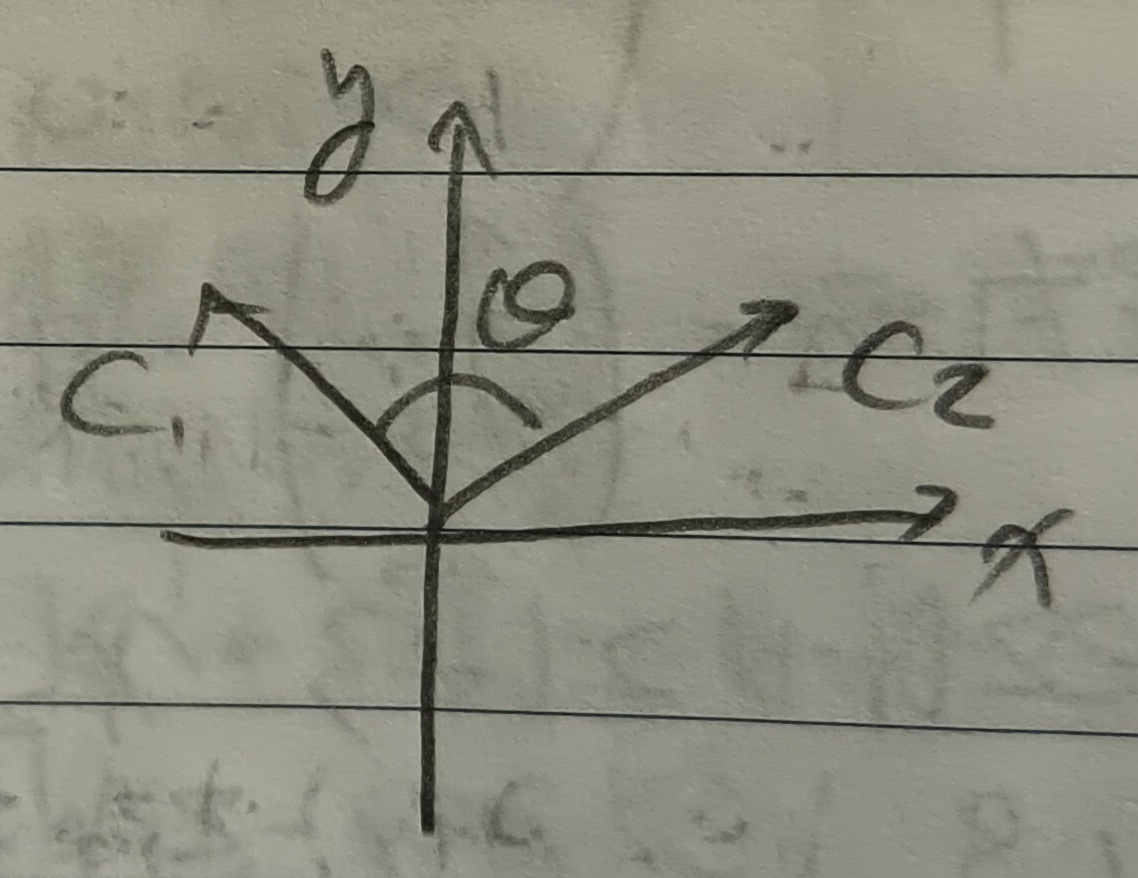 y
θ
C₁
C₂
x